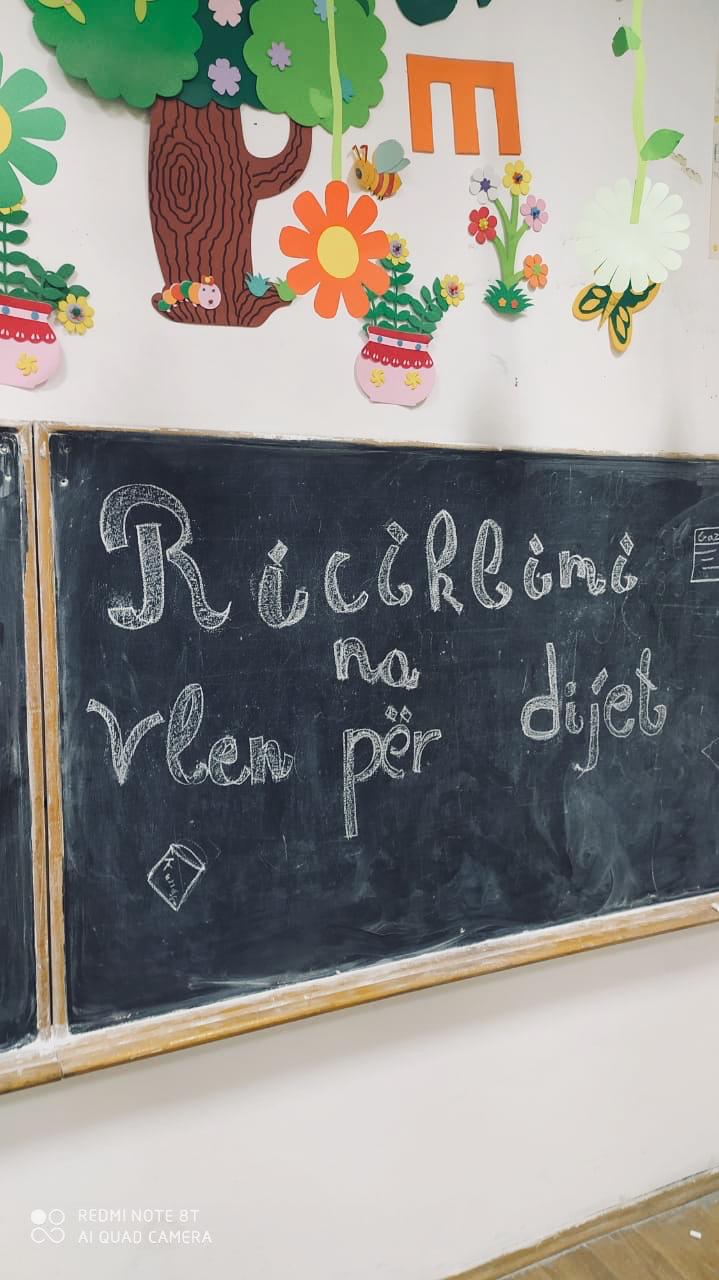 Riciklimi
na
vlen për dijet
Gaz
REDMI NOTE 8T
AI QUAD CAMERA